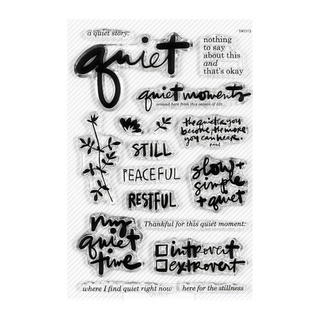 a quiet story:
quiet
nothing
to say
about this
and
that's okay
quiet moments
around here from this season of life...
the quieter you
become, the more
you can hear.
STILL
PEACEFUL
RESTFUL
slow +
simple
+ quiet
my
quiet
time
Thankful for this quiet moment:
introvert
extrovert
where I find quiet right now
here for the stillness